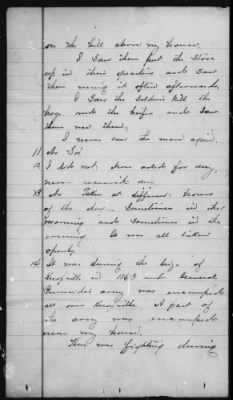 on the hill above my house.
I saw them put the stove
up in their quarters and saw
them using it often afterwards.
I saw the soldiers kill the
hogs and the heifer and saw
them use them.
I never saw the mare again.
11 No Sir
12 I did not then asked for any
13 No Taken at different hours
of the day Sometimes in the
morning and sometimes in the
evening. It was all taken
openly.
14 It was during the siege of
Knoxville in 1863 and General
Burnside's army was encamped
all over Knoxville. A part of
the army was encamped
near my house.
There was fighting during